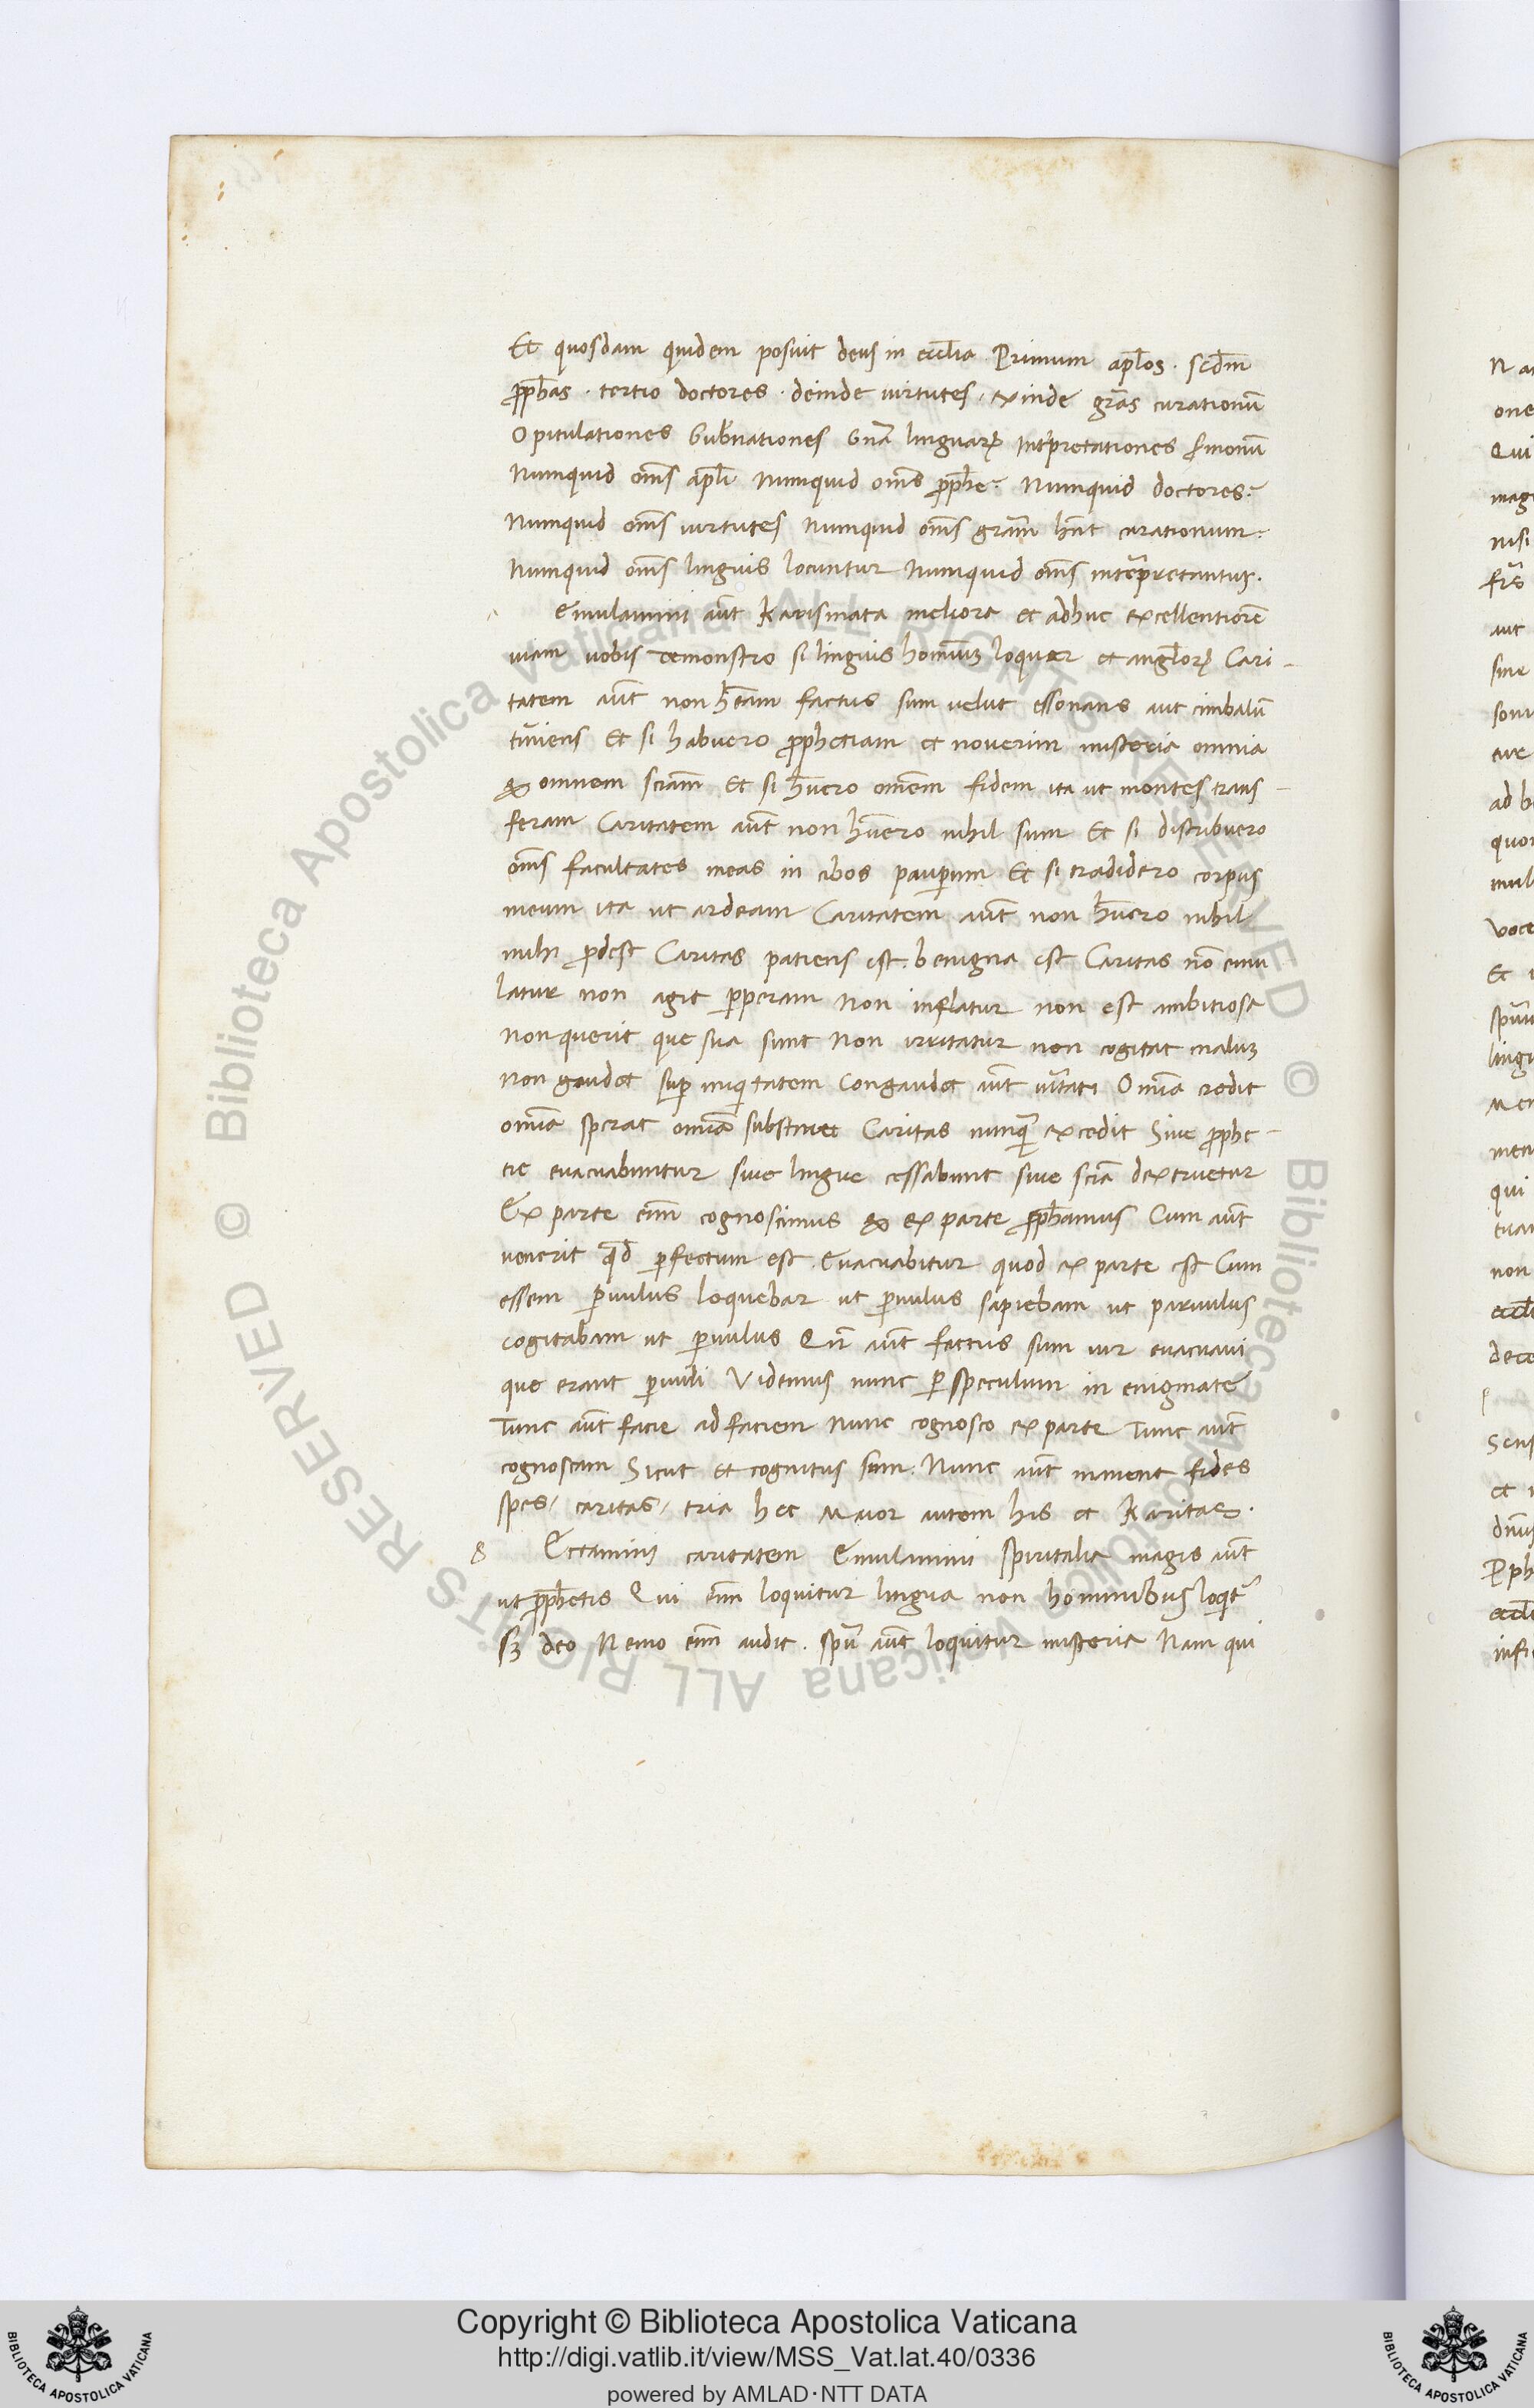 Et quosdam quidem posuit deus in eccl̄ia Primum apl̄os . scd̄m
ꝓpħas . tertio doctores . deinde virtutes . exinde gr̄as curationū
Opitulationes Gub̄nationes Gn̄a linguaꝝ int̄pretationes s̄monū
Numquid om̄s apl̄i Numquid om̄s ꝓpħe? Numquid doctores?
Numquid om̄s virtutes Numquid om̄s gr̄am hn̄t curationum?
Numquid om̄s linguis locuntur Numquid om̄s inter̄pretantur.
Emulamini aūt karismata meliora et adhuc excellentiorē
viam vobis demonstro si linguis hominū loquar et angl̄oꝝ Cari-
tatem aūt non hēam factus sum velut essonans aut cimbalū
tīniens Et si habuero ꝓphetiam et noverim misteria omnia
& omnem sciam̄ Et si h̄uero omēm fidem ita ut montes trans-
feram Caritatem aūt non h̄uero nihil sum Et si distribuero
om̄s facultates meas in cibos pauꝑum Et si tradidero corpus
meum ita ut ardeam Caritatem aūt non h̄uero nihil
mihi ꝓdest Caritas patiens est . benigna est Caritas nō emu
latur non agit ꝑperam non inflatur non est ambitiosa
non querit que sua sunt non irritatur non cogitat maluꝫ
non gaudet suꝑ iniquitatem Congaudet aūt vītati Omīa credit
omīa sperat omīa substinet Caritas nunqᷓ excedit Sive ꝓphe-
tie evacuabuntur sive lingue cessabunt sive scīa dextruetur
Ex parte enī cognoscimus & ex parte ꝓpħamus Cum aūt
venerit qd̄ ꝑfectum est Evacuabitur quod ex parte est Cum
essem ꝑvulus loquebar ut ꝑvulus sapiebam ut parvulus
cogitabam ut ꝑvulus Qn̄ aūt factus sum vir evacuavi
que erant ꝑvuli Videmus nunc ꝑ speculum in enigmate
Tunc aūt facie ad faciem nunc cognosco ex parte Tunc aūt
cognoscam Sicut et cognitus sum . Nunc aūt manent fides
spes / caritas / tria hec Maior autem his et karitas .
Ectamini caritatem Emulamini spiritalia magis aūt
ut ꝓpħetis Qui enī loquitur lingua non hominibus loqit᷑
sꝫ deo Nemo enī audit . spū aūt loquitur misteria Nam qui
Copyright © Biblioteca Apostolica Vaticana
http://digi.vatlib.it/view/MSS_Vat.lat.40/0336
powered by AMLAD·NTT DATA
BIBLIOTECA APOSTOLICA VATICANA
BIBLIOTECA APOSTOLICA VATICANA
© Biblioteca Apostolica Vaticana ALL RIGHTS RESERVED © Biblioteca Apostolica Vaticana ALL RIGHTS RESERVED